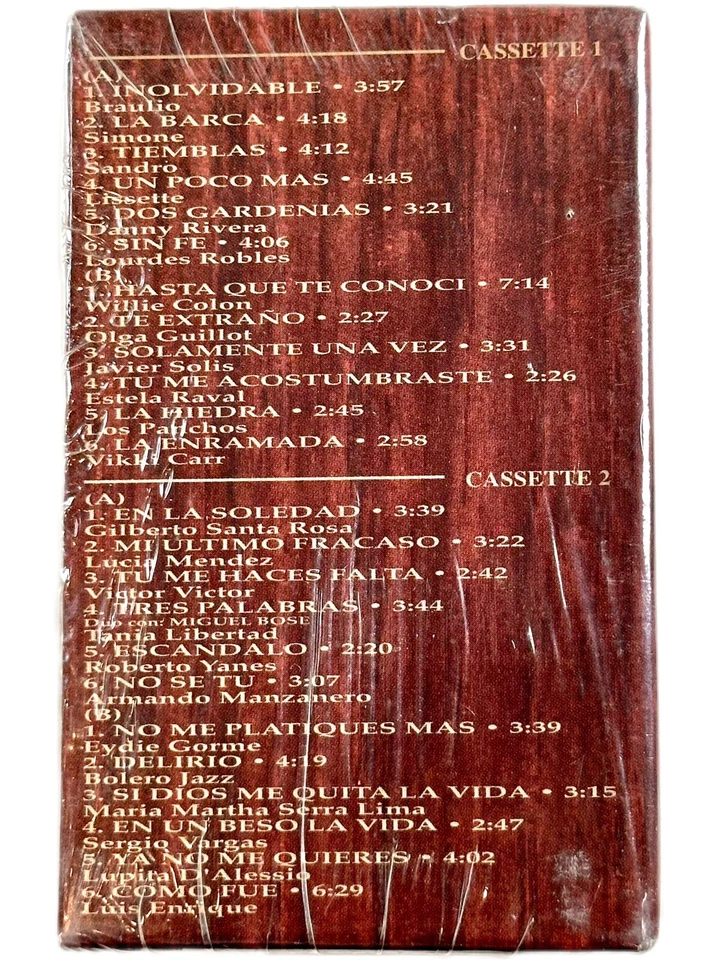 CASSETTE 1
(A)
1. INOLVIDABLE • 3:57
Braulio
2. LA BARCA • 4:18
Simone
3. TIEMBLAS • 4:12
Sandro
4. UN POCO MAS • 4:45
Lissette
5. DOS GARDENIAS • 3:21
Danny Rivera
6. SIN FE • 4:06
Lourdes Robles
(B)
1. HASTA QUE TE CONOCI • 7:14
Willie Colon
2. TE EXTRAÑO • 2:27
Olga Guillot
3. SOLAMENTE UNA VEZ • 3:31
Javier Solis
4. TU ME ACOSTUMBRASTE • 2:26
Estela Raval
5. LA HIEDRA • 2:45
Los Panchos
6. LA ENRAMADA • 2:58
Vikki Carr
CASSETTE 2
(A)
1. EN LA SOLEDAD • 3:39
Gilberto Santa Rosa
2. MI ULTIMO FRACASO • 3:22
Lucia Mendez
3. TU ME HACES FALTA • 2:42
Victor Victor
4. TRES PALABRAS • 3:44
Duo con: MIGUEL BOSE
Tania Libertad
5. ESCANDALO • 2:20
Roberto Yanes
6. NO SE TU • 3:07
Armando Manzanero
(B)
1. NO ME PLATIQUES MAS • 3:39
Eydie Gorme
2. DELIRIO • 4:19
Bolero Jazz
3. SI DIOS ME QUITA LA VIDA • 3:15
Maria Martha Serra Lima
4. EN UN BESO LA VIDA • 2:47
Sergio Vargas
5. YA NO ME QUIERES • 4:02
Lupita D'Alessio
6. COMO FUE • 6:29
Luis Enrique